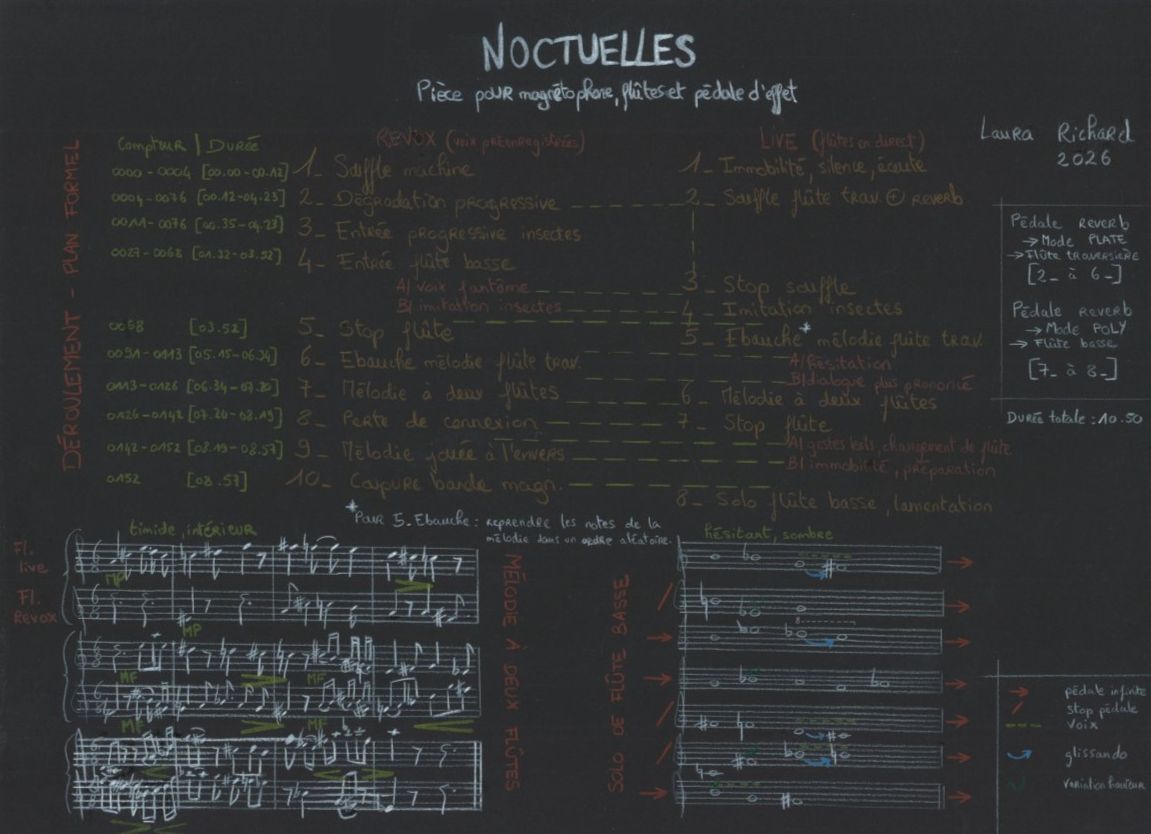 NOCTUELLES
Pièce pour magnétophone, flûtes et pédale d'effet
Laura Richard
2026
DÉROULEMENT - PLAN FORMEL
Compteur | DURÉE
REVOX (voix préenregistrées)
LIVE (flûtes en direct)
0000-0004 [00.00-00.12] 1_ Souffle machine
1_ Immobilité, silence, écoute
0004-0076 [00.12-04.23] 2_ Dégradation progressive
2_ Souffle flûte trav. ⊕ REVERB
0011-0076 [00.35-04.23] 3_ Entrée progressive insectes
0027-0068 [01.32-03.52] 4_ Entrée flûte basse
A/ voix fantôme
3_ Stop souffle
B/ imitation insectes
4_ Imitation insectes
0068 [03.52] 5_ Stop flûte
5_ Ebauche* mélodie flûte trav.
0091-0113 [05.15-06.34] 6_ Ebauche mélodie flûte trav.
A/ hésitation
B/ dialogue plus prononcé
0113-0126 [06.34-07.20] 7_ Mélodie à deux flûtes
6_ Mélodie à deux flûtes
0126-0142 [07.20-08.19] 8_ Perte de connexion
7_ Stop flûte
A/ gestes lents, changement de flûte
0142-0152 [08.19-08.57] 9_ Mélodie jouée à l'envers
B/ immobilité, préparation
0152 [08.57] 10_ Coupure bande magn.
8_ Solo flûte basse, lamentation
Pédale REVERB
→ Mode PLATE
→ Flûte TRAVERSIÈRE
[2_ à 6_]
Pédale REVERB
→ Mode POLY
→ Flûte basse
[7_ à 8_]
DURÉE totale : 10.50
*Pour 5_Ebauche : reprendre les notes de la
mélodie dans un ordre aléatoire.
timide, intérieur
hésitant, sombre
Fl.
live
MP
Fl.
Revox
MP
MF
MF
MF
MF
MÉLODIE À DEUX FLÛTES
SOLO DE FLÛTE BASSE
8
→ pédale infinie
/ stop pédale
--- voix
glissando
variation hauteur